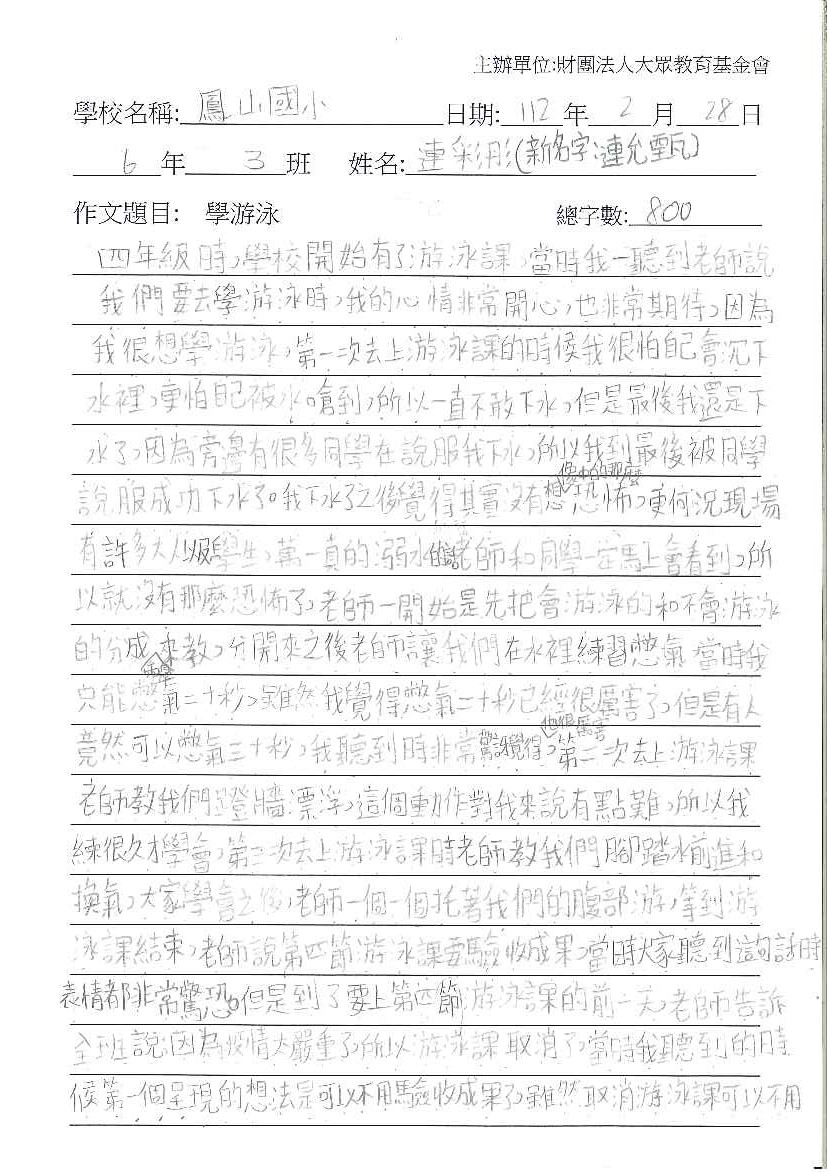 主辦單位:財團法人大眾教育基金會
學校名稱: 鳳山國小 日期: 112 年 2 月 28 日
6 年 3 班 姓名: 連彩彤(新名字:連允甄)
作文題目: 學游泳 總字數: 800
四年級時,學校開始有了游泳課,當時我一聽到老師說
我們要去學游泳時,我的心情非常開心,也非常期待,因為
我很想學游泳,第一次去上游泳課的時候我很怕自己會沉下
水裡,更怕自己被水嗆到,所以一直不敢下水,但是最後我還是下
水了,因為旁邊有很多同學在說服我下水,所以我到最後被同學
說服成功下水了。我下水了之後覺得其實沒有想像中的那麼恐怖,更何況現場
有許多大人以及學生,萬一真的溺水的話老師和同學一定馬上會看到,所
以就沒有那麼恐怖了,老師一開始是先把會游泳的和不會游泳
的分成兩半來教,分開來之後老師讓我們在水裡練習憋氣,當時我
只能憋氣二十秒,雖然我覺得憋氣二十秒已經很厲害了,但是有人
竟然可以憋氣三十秒,我聽到時非常驚訝覺得他很厲害,第二次去上游泳課
老師教我們蹬牆漂浮,這個動作對我來說有點難,所以我
練很久才學會,第三次去上游泳課時老師教我們腳踏水前進和
換氣,大家學會之後,老師一個一個托著我們的腹部游,等到游
泳課結束,老師說第四節游泳課要驗收成果,當時大家聽到這句話時
表情都非常驚恐。但是到了要上第四節游泳課的前一天,老師告訴
全班說:因為疫情太嚴重了所以游泳課取消了,當時我聽到的時
候第一個呈現的想法是可以不用驗收成果了,雖然取消游泳課可以不用